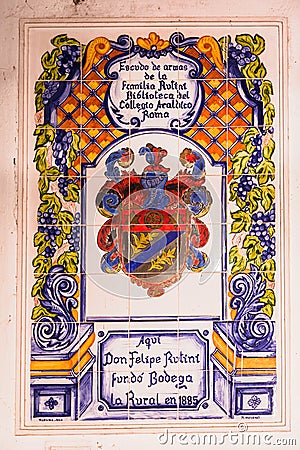 Escudo de armas
de la
Familia Rutini
Biblioteca del
Collegio Araldico
Roma
Aqui
Don Felipe Rutini
fundó Bodega
la Rural en 1885